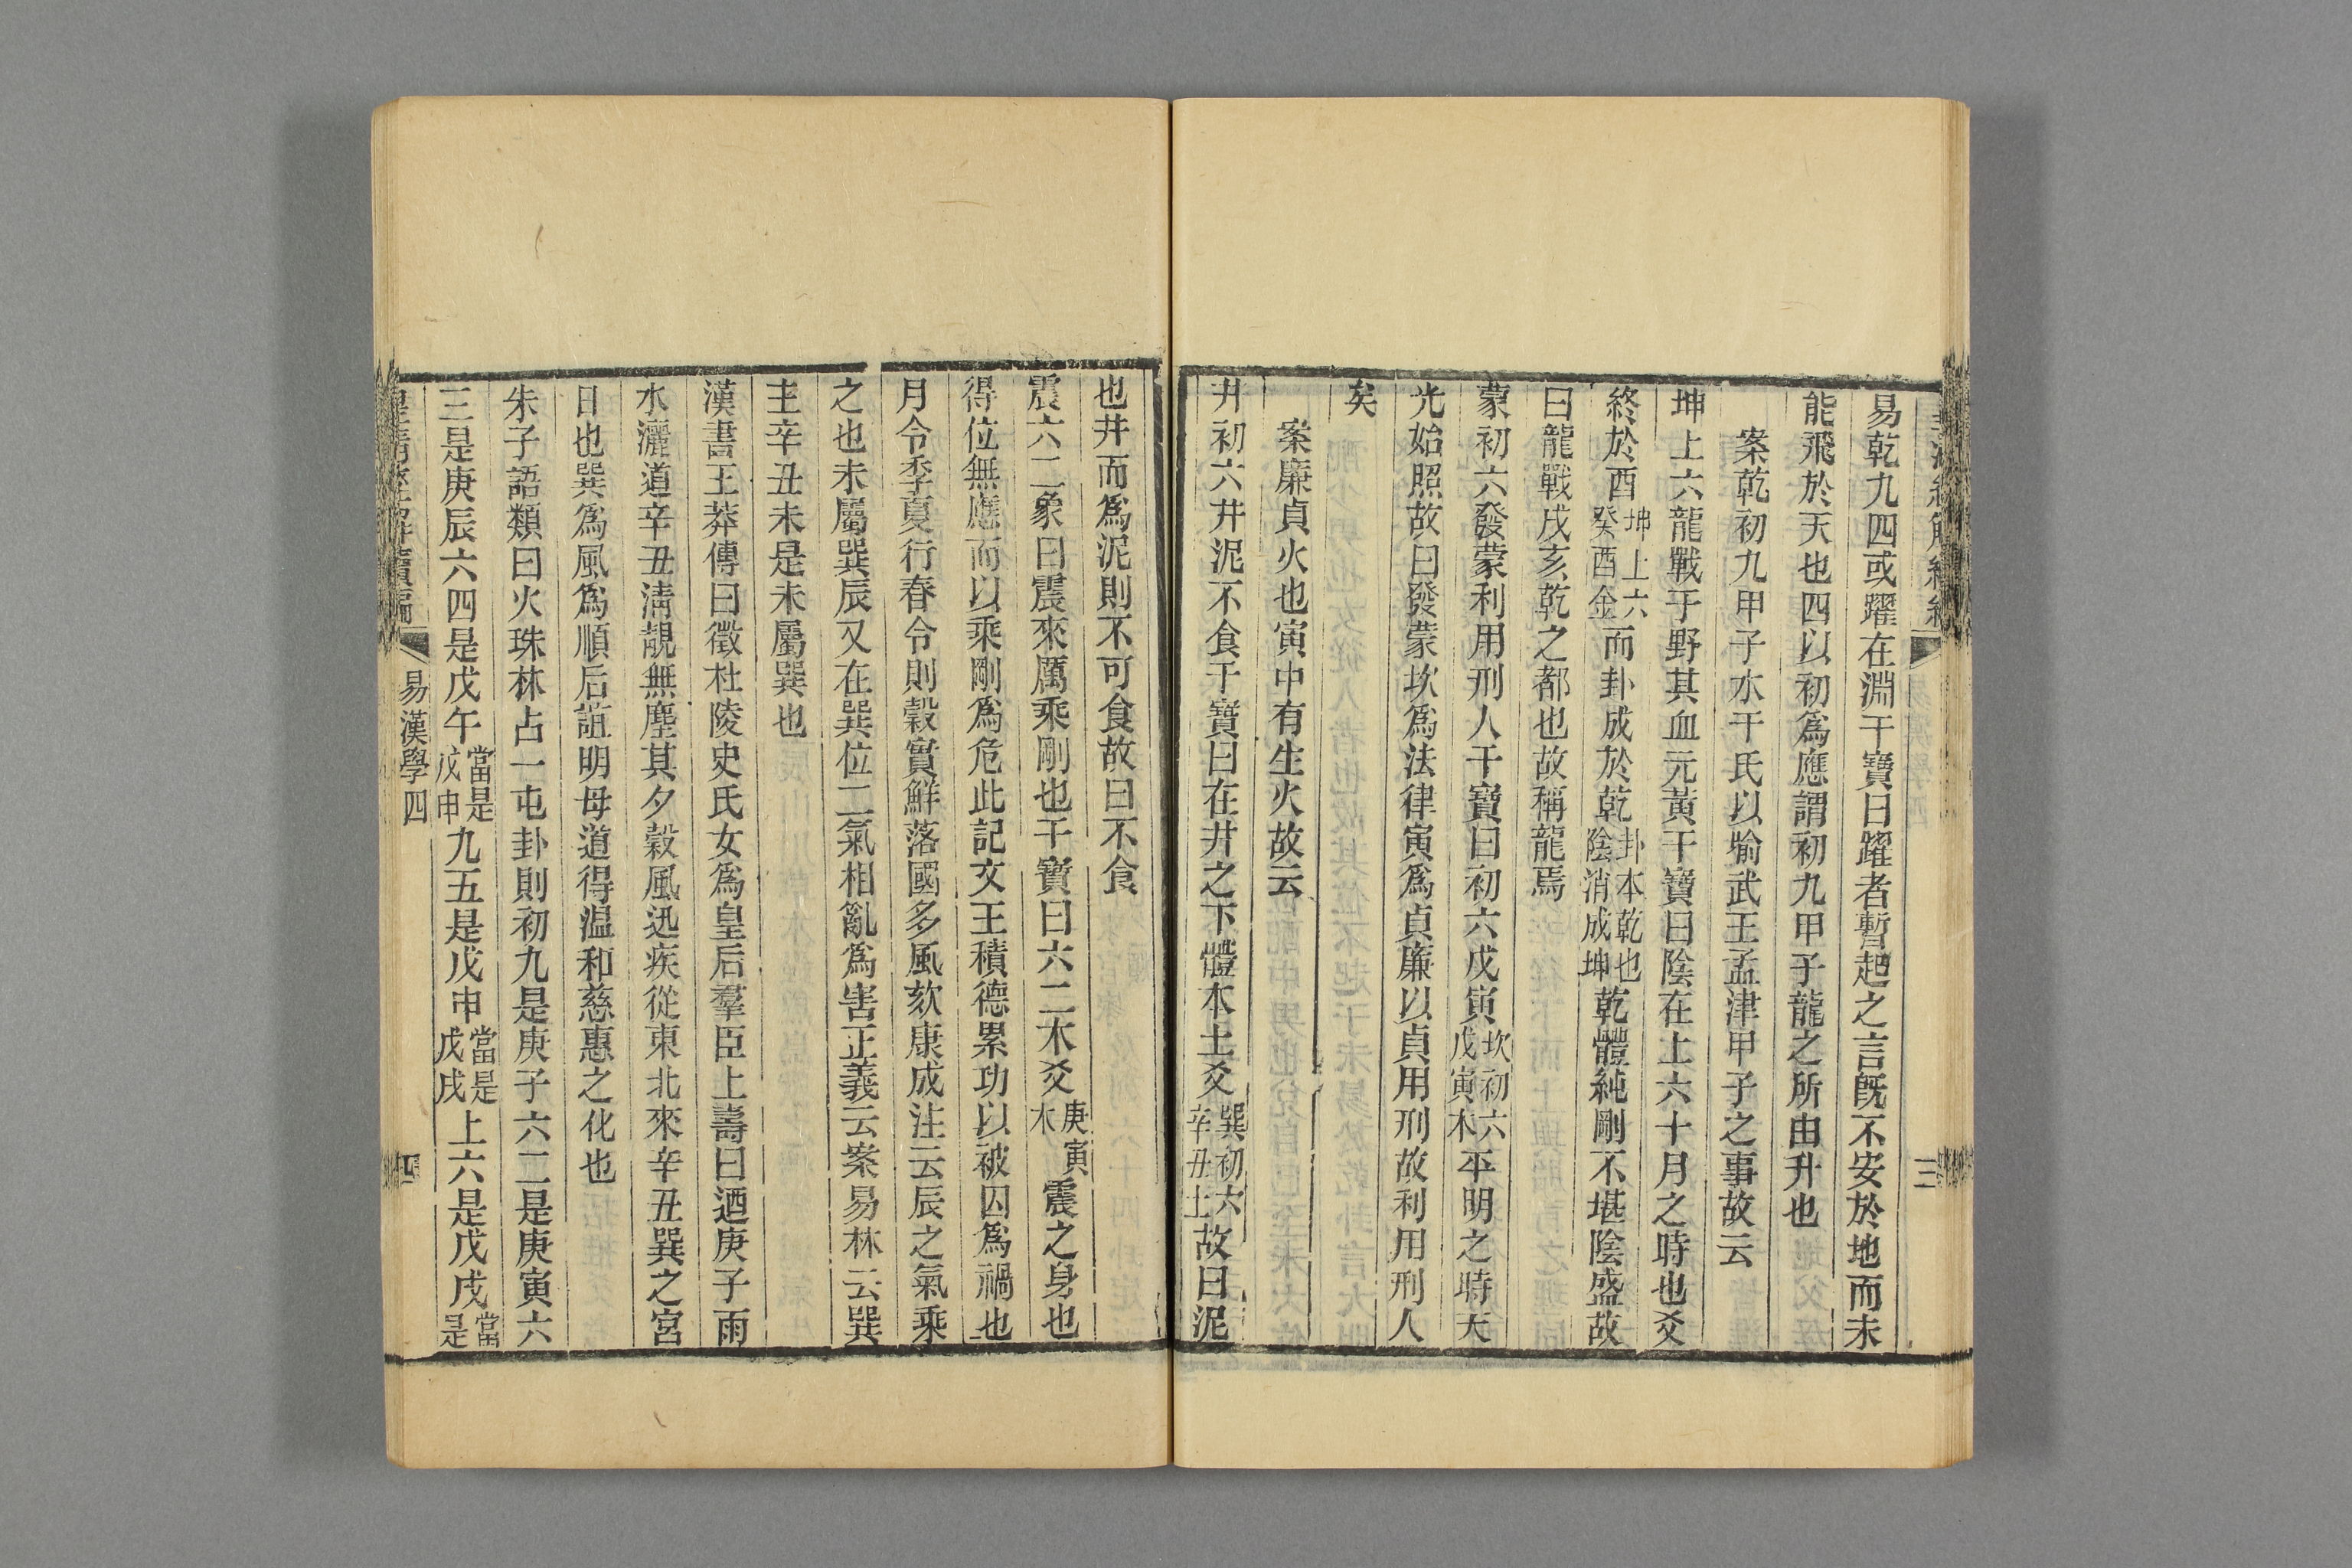 易乾九四或躍在淵干寶曰躍者暫起之言旣不安於地而未
能飛於天也四以初爲應謂初九甲子龍之所由升也
案乾初九甲子水干氏以喻武王孟津甲子之事故云
坤上六龍戰于野其血元黃干寶曰陰在上六十月之時也爻
終於酉坤上六癸酉金而卦成於乾卦本乾也陰消成坤乾體純剛不堪陰盛故
曰龍戰戌亥乾之都也故稱龍焉
蒙初六發蒙利用刑人干寶曰初六戊寅坎初六戊寅木平明之時天
光始照故曰發蒙坎爲法律寅爲貞廉以貞用刑故利用刑人
矣
案廉貞火也寅中有生火故云
井初六井泥不食干寶曰在井之下體本土爻巽初六辛丑土故曰泥
三
也井而爲泥則不可食故曰不食
震六二象曰震來厲乘剛也干寶曰六二木爻庚寅木震之身也
得位無應而以乘剛爲危此記文王積德累功以被囚爲禍也
月令季夏行春令則穀實鮮落國多風欬康成注云辰之氣乘
之也未屬巽辰又在巽位二氣相亂爲害正義云案易林云巽
主辛丑未是未屬巽也
漢書王莽傳曰徵杜陵史氏女爲皇后羣臣上壽曰迺庚子雨
水灑道辛丑淸靚無塵其夕穀風迅疾從東北來辛丑巽之宮
日也巽爲風爲順后誼明母道得温和慈惠之化也
朱子語類曰火珠林占一屯卦則初九是庚子六二是庚寅六
三是庚辰六四是戊午當是戊申九五是戊申當是戊戌上六是戊戌當是
皇淸經解續編
易漢學四
四